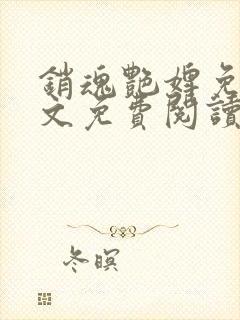 銷魂艷婢免
文免費閱讀
冬暝